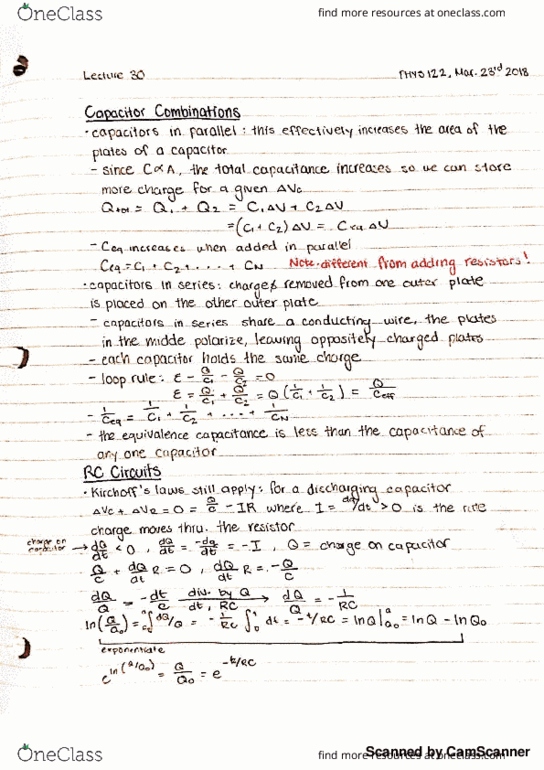 OneClass find more resources at oneclass.com
Lecture 30 PHYS 122, Mar. 23rd 2018
Capacitor Combinations
• capacitors in parallel: this effectively increases the area of the
plates of a capacitor
- since C∝A, the total capacitance increases so we can store
more charge for a given ΔVc
Qtot = Q1 + Q2 = C1ΔV + C2ΔV
=(C1 + C2) ΔV = CeqΔV
- Ceq increases when added in parallel
Ceq = C1 + C2 + .... + CN Note: different from adding resistors!
• capacitors in series: charges removed from one outer plate
is placed on the other outer plate
- capacitors in series share a conducting wire, the plates
in the middle polarize, leaving oppositely charged plates
- each capacitor holds the same charge
- loop rule: ε - Q/C1 - Q/C2 = 0
ε = Q/C1 + Q/C2 = Q (1/C1 + 1/C2) = Q/Ceff
- 1/Ceq = 1/C1 + 1/C2 + ... + 1/CN
- the equivalence capacitance is less than the capacitance of
any one capacitor
RC Circuits
• Kirchoff's laws still apply: for a discharging capacitor
ΔVC + ΔVR = 0 = Q/C - IR where I = dq/dt > 0 is the rate
charge moves thru. the resistor
charge on capacitor → dQ/dt < 0, dQ/dt = -dq/dt = -I, Q = charge on capacitor
Q/C + dQ/dt R = 0, dQ/dt R = -Q/C
dQ/Q = -dt/C div. by Q/dt, RC → dQ/Q = -1/RC
ln(Q/Q0) = ∫ dQ/Q = -1/RC ∫ dt = -t/RC = lnQ| = lnQ - lnQ0
exponentiate
e^ln(Q/Q0) = Q/Q0 = e^-t/RC
OneClass find more resources at oneclass.com
Scanned by CamScanner